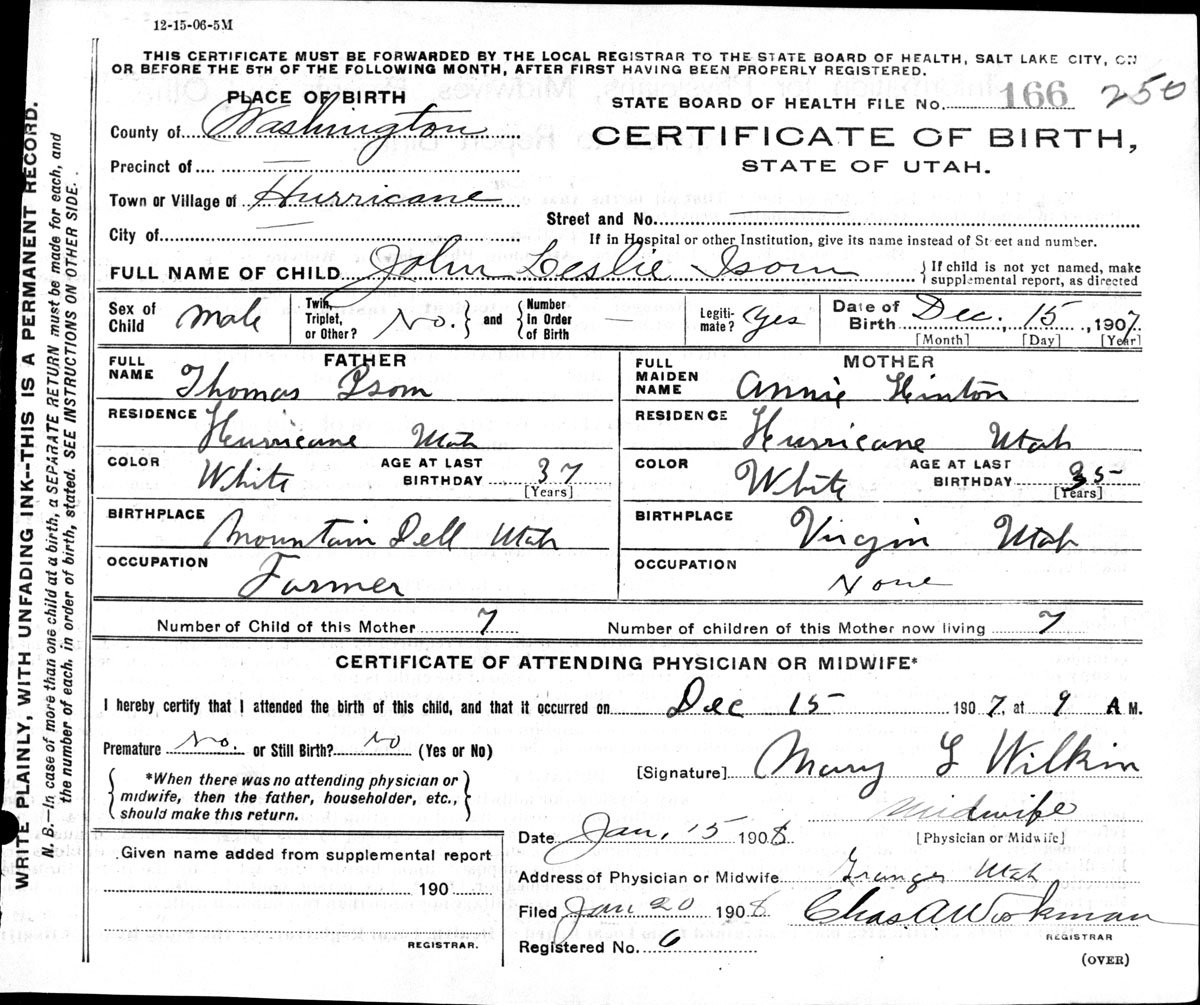 12-15-06-5M
THIS CERTIFICATE MUST BE FORWARDED BY THE LOCAL REGISTRAR TO THE STATE BOARD OF HEALTH, SALT LAKE CITY, ON
OR BEFORE THE 5TH OF THE FOLLOWING MONTH, AFTER FIRST HAVING BEEN PROPERLY REGISTERED.
PLACE OF BIRTH
STATE BOARD OF HEALTH FILE No. 166 250
County of Washington
CERTIFICATE OF BIRTH,
STATE OF UTAH.
Precinct of —
Town or Village of Hurricane
Street and No.
City of —
If in Hospital or other Institution, give its name instead of Street and number.
FULL NAME OF CHILD John Leslie Isom {If child is not yet named, make
supplemental report, as directed
Sex of Child Male
Twin, Triplet, or Other? No. } and { Number In Order of Birth —
Legiti-mate? Yes
Date of Birth Dec. 15, 1907.
[Month] [Day] [Year]
FATHER
FULL NAME Thomas Isom
RESIDENCE Hurricane Utah
COLOR White AGE AT LAST BIRTHDAY 37
[Years]
BIRTHPLACE Mountain Dell Utah
OCCUPATION Farmer
MOTHER
FULL MAIDEN NAME Annie Hinton
RESIDENCE Hurricane Utah
COLOR White AGE AT LAST BIRTHDAY 35
[Years]
BIRTHPLACE Virgin Utah
OCCUPATION None
Number of Child of this Mother 7 Number of children of this Mother now living 7
CERTIFICATE OF ATTENDING PHYSICIAN OR MIDWIFE*
I hereby certify that I attended the birth of this child, and that it occurred on Dec 15 1907, at 9 A M.
Premature No. or Still Birth? No (Yes or No)
{*When there was no attending physician or
midwife, then the father, householder, etc.,
should make this return.}
[Signature] Mary L Wilkin
Midwife
[Physician or Midwife]
Date Jan, 15 1908
Given name added from supplemental report
190
REGISTRAR.
Address of Physician or Midwife Utah
Filed Jan 20 1908 Chas A Workman
REGISTRAR
Registered No. 6
(OVER)
WRITE PLAINLY, WITH UNFADING INK--THIS IS A PERMANENT RECORD.
N. B.—In case of more than one child at a birth, a SEPARATE RETURN must be made for each, and
the number of each, in order of birth, stated. SEE INSTRUCTIONS ON OTHER SIDE.